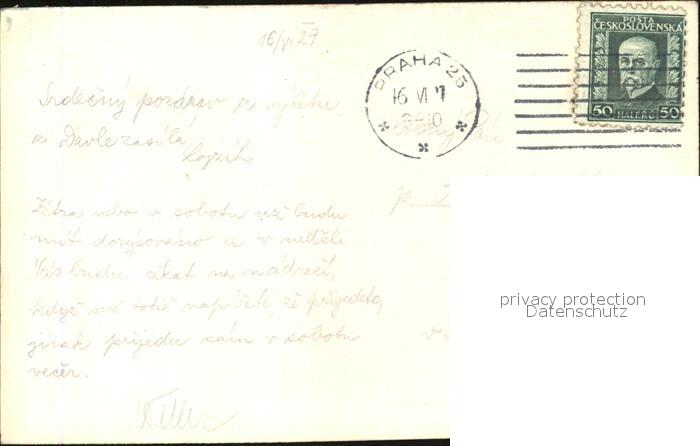 16/VI 27
POŠTA
ČESKOSLOVENSKÁ
50 HALÉŘŮ 50
PRAHA 25
16 VI 7
Srdečný pozdrav z výletu
z Davle zasílá
Zítra nebo v sobotu už budu
mít dorýsováno a v neděli
Vás budu čekat na nádraží,
když mě totiž napíšete, že přijedete,
jinak přijedu sám v sobotu
večer.
p.
v.
privacy protection
Datenschutz